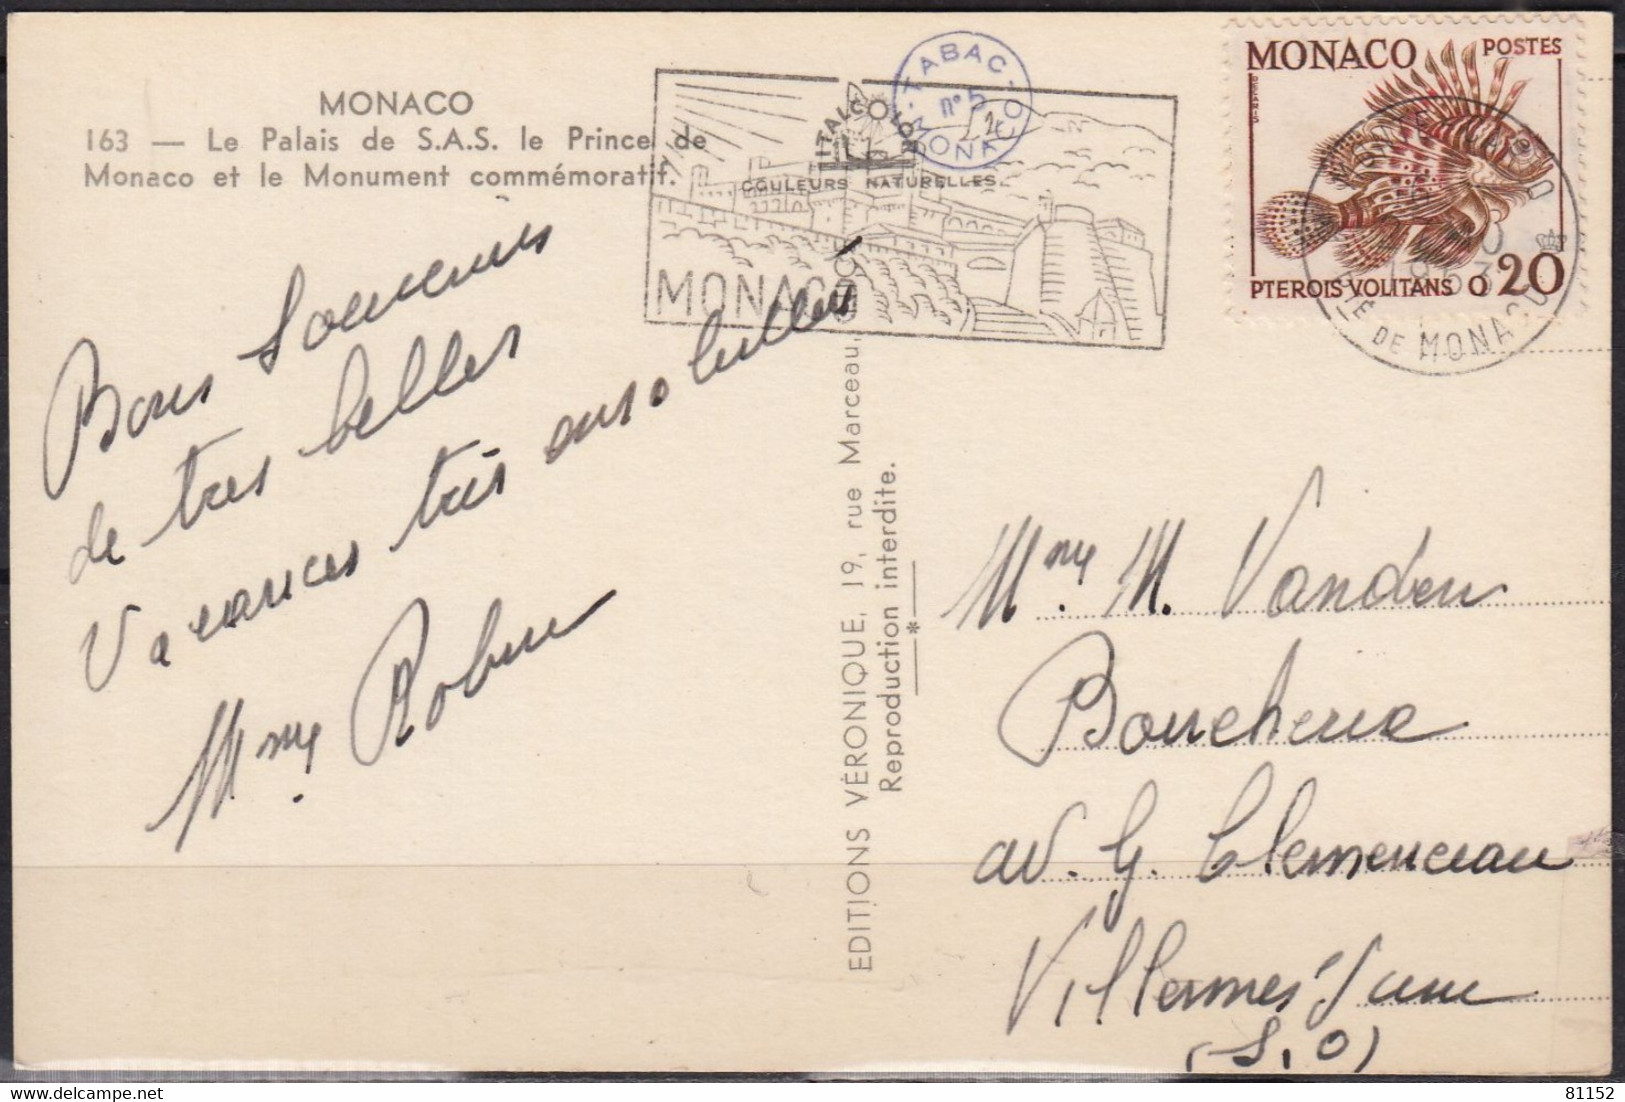 MONACO
163 — Le Palais de S.A.S. le Prince de
Monaco et le Monument commémoratif.
ITALCOLOR
COULEURS NATURELLES
MONACO
TABAC
n° 5
MONACO
MONACO POSTES
DECARIS
PTEROIS VOLITANS 0,20
1963
PTÉ DE MONACO
Bons Souvenirs
de tres belles
Vacances très ensoleillées
Mme Robin
EDITIONS VÉRONIQUE, 19, rue Marceau,
Reproduction interdite.
*
Mme. M. Vanden
Boucherie
av. G. Clemenceau
(S. O)
81152